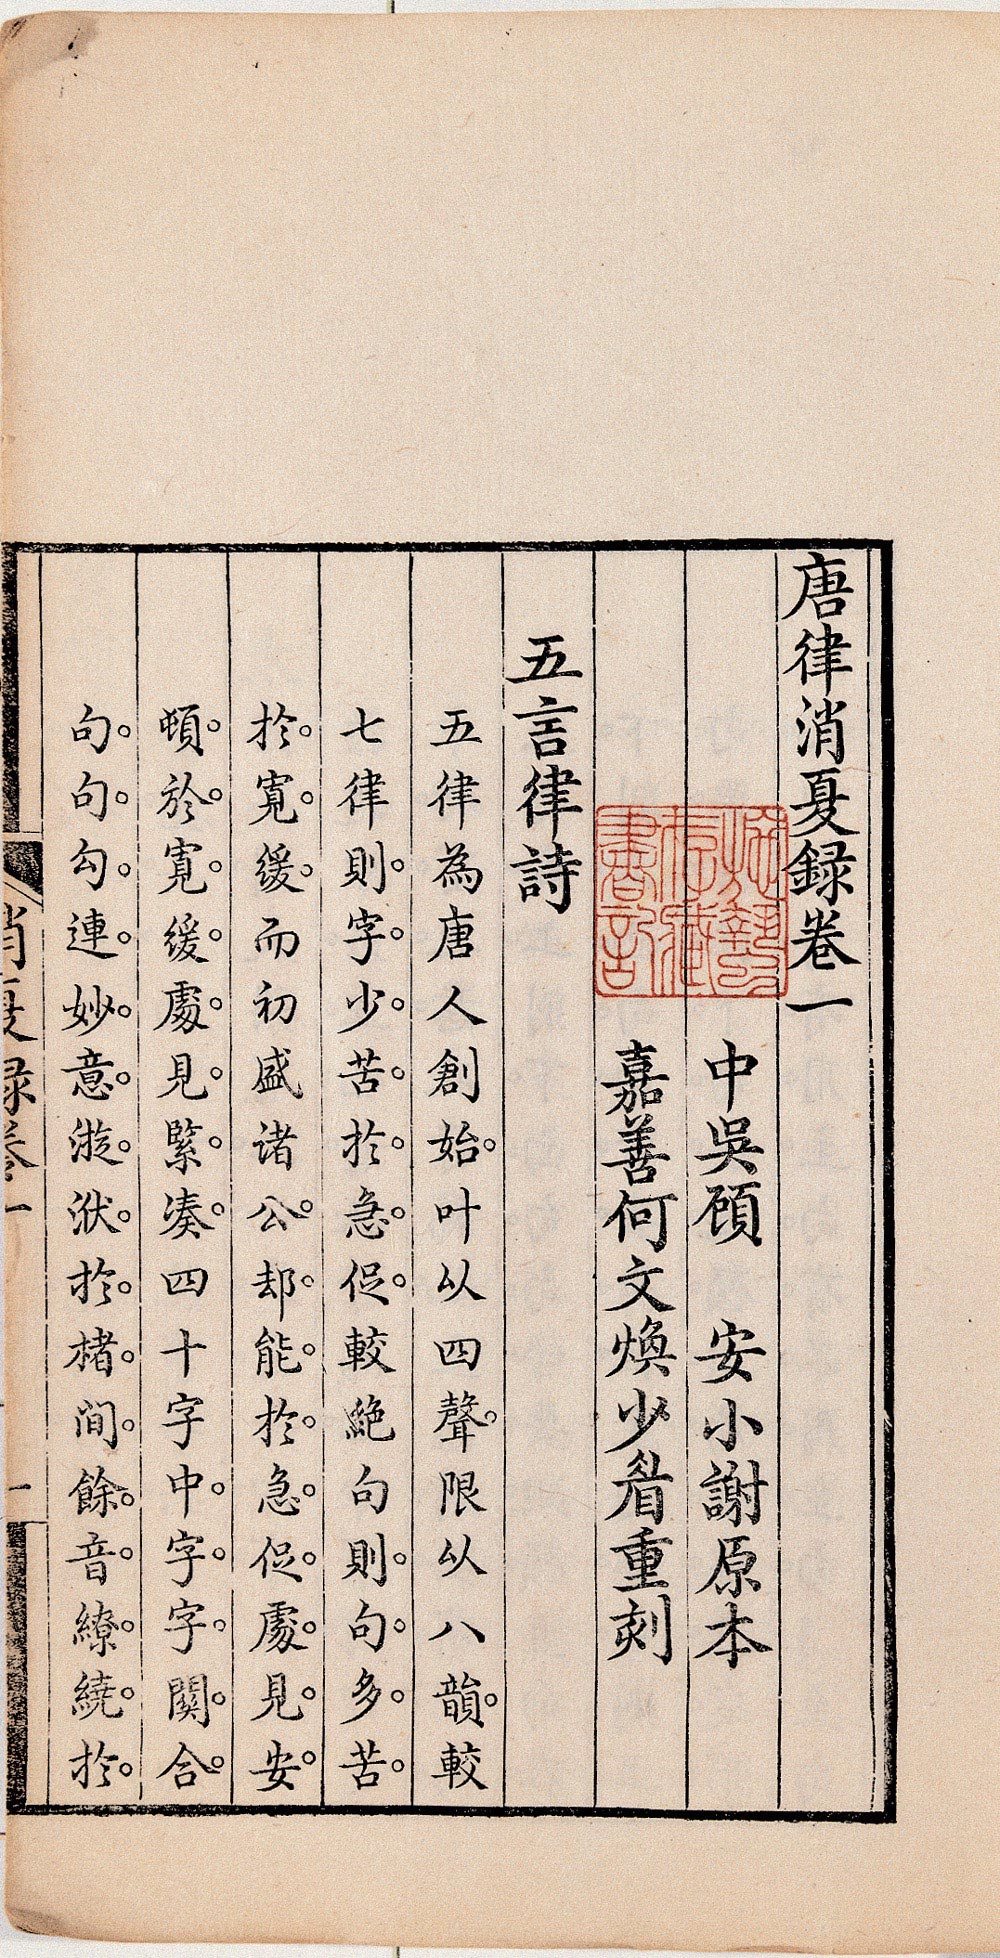 唐律消夏録卷一
中吳顧　安小謝原本
嘉善何文煥少眉重刻
五言律詩
五律為唐人創始。叶以四聲。限以八韻。較
七律則。字。少。苦。於。急。促。較絕句則。句。多。苦。
於。寬。緩。而初盛諸公。却。能。於。急。促。處。見。安。
頓。於。寬。緩。處。見。緊。湊。四十字中。字。字。関。合。
句。句。勾。連。妙。意。漩。洑。於。楮。間。餘。音。繚。繞。於。
消夏録卷一
一